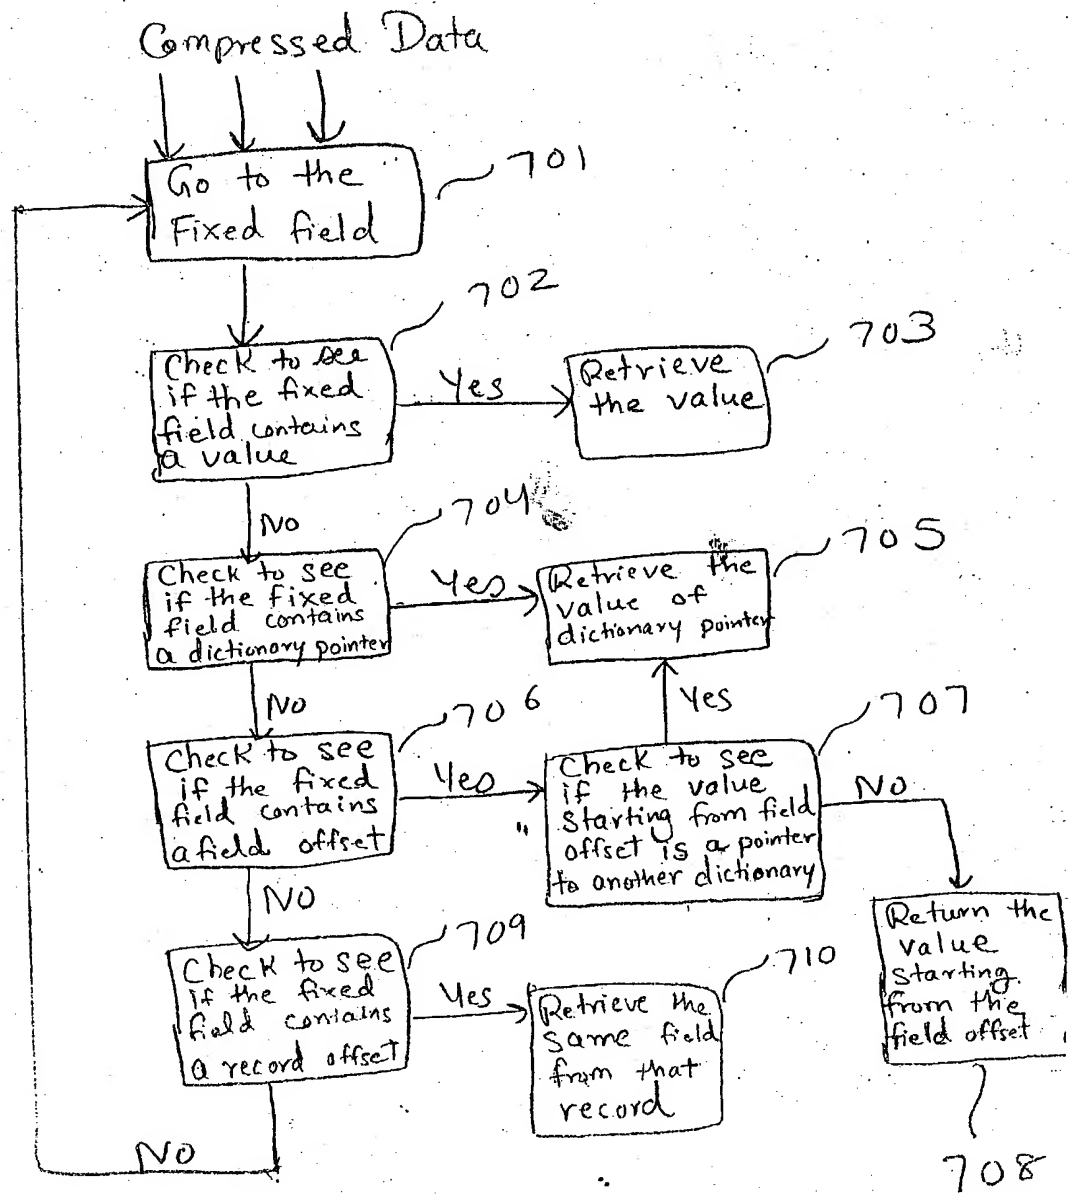 Compressed Data
Go to the
Fixed field
701
702
Check to see
if the fixed
field contains
a value
Yes
703
Retrieve
the value
No
704
Check to see
if the fixed
field contains
a dictionary pointer
Yes
705
Retrieve the
value of
dictionary pointer
No
706
Check to see
if the fixed
field contains
a field offset
Yes
Yes
707
Check to see
if the value
Starting from field
offset is a pointer
to another dictionary
No
Return the
value
Starting
from the
field offset
708
No
709
Check to see
if the fixed
field contains
a record offset
Yes
710
Retrieve the
same field
from that
record
No